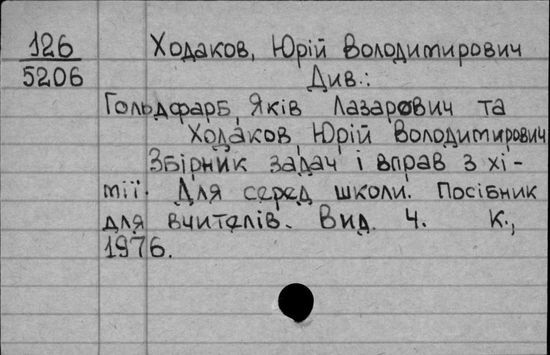 126
5206
Ходаков, Юрій Володимирович
Див.:
Гольдфарб, Яків Лазарович та
Ходаков, Юрій Володимирович
Збірник задач і вправ з хі-
мії. Для серед школи. Посібник
для вчителів. Вид. 4. К.,
1976.